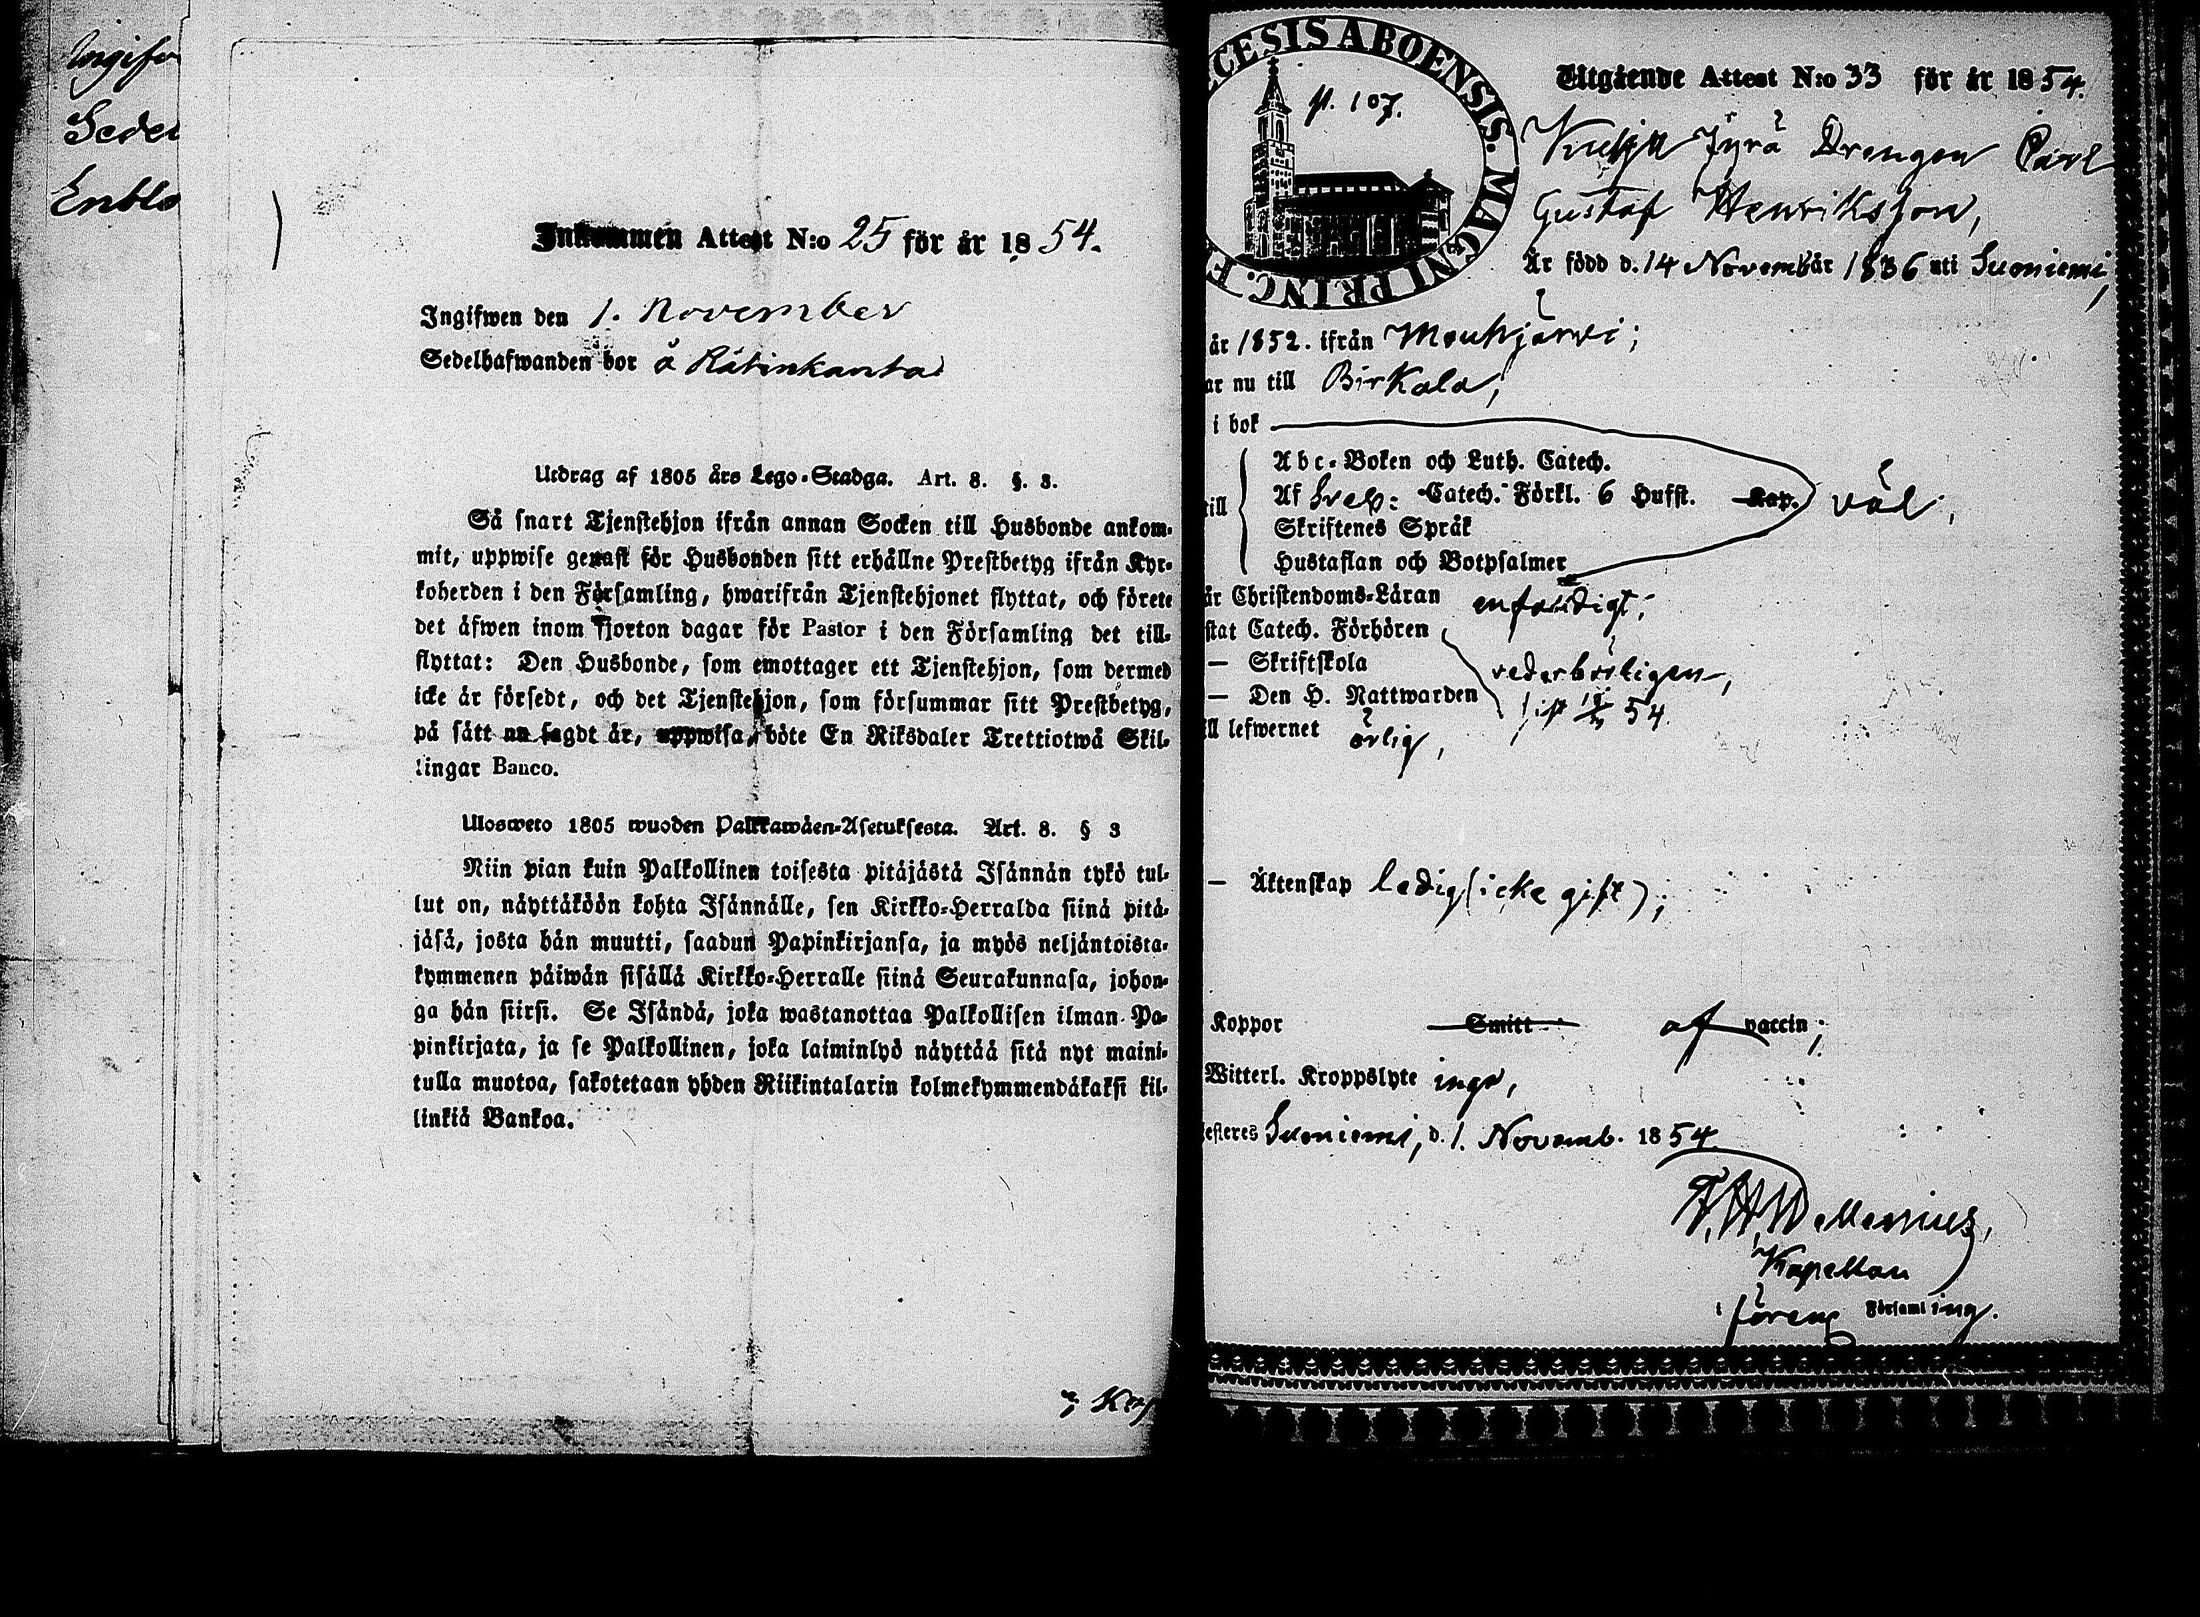 Ingifw
Sedel
Inkommen Attest N:o 25 för år 1854.
Ingifwen den 1. November
Sedelhafwanden bor å Rätinkanta
Utdrag af 1805 års Lego-Stadga. Art. 8. §. 3.
Så snart Tjenstehjon ifrån annan Socken till Husbonde ankom-
mit, uppwise genast för Husbonden sitt erhållne Prestbetyg ifrån Kyr-
koherden i den Församling, hwarifrån Tjenstehjonet flyttat, och förete
det äfwen inom fjorton dagar för Pastor i den Församling det till-
flyttat: Den Husbonde, som emottager ett Tjenstehjon, som dermed
icke är försedt, och det Tjenstehjon, som försummar sitt Prestbetyg,
på sätt nu sagdt är, uppwisa, böte En Riksdaler Trettiotwå Skil-
lingar Banco.
Ulosweto 1805 wuoden Palkkawäen-Asetuksesta. Art. 8. § 3
Niin pian kuin Palkollinen toisesta pitäjästä Isännän tykö tul-
lut on, näyttäköön kohta Isännälle, sen Kirkko-Herralda siinä pitä-
jäsä, josta hän muutti, saadun Papinkirjansa, ja myös neljäntoista-
kymmenen päiwän sisällä Kirkko-Herralle siinä Seurakunnasa, johon-
ga hän siirsi. Se Isändä, joka wastanottaa Palkollisen ilman Pa-
pinkirjata, ja se Palkollinen, joka laiminlyö näyttää sitä nyt maini-
tulla muotoa, sakotetaan yhden Riikintalarin kolmekymmendäkaksi kil-
linkiä Bankoa.
CESIS ABOENSIS. MAGNI PRINC. F
p. 107.
Utgående Attest N:o 33 för år 1854.
Jyrä Drengen Carl
Gustaf Henriksson,
Är född d. 14 Novemb år 1836 uti Suoniemi,
år 1852. ifrån Mouhijärwi;
ar nu till Birkala,
i bok
Abc-Boken och Luth. Catech.
till Af Sveb: Catech. Förkl. 6 Hufst. Kap. väl,
Skriftenes Språk
Hustaflan och Botpsalmer
är Christendoms-Läran enfaldigt;
stat Catech. Förhören
— Skriftskola vederbörligen,
— Den H. Nattwarden 54.
ll lefwernet ärlig,
— Äktenskap ledig (icke gift);
Koppor Smitt af vaccin;
Witterl. Kroppslyte inga,
esteres Suoniemi, d. 1. Novemb. 1854
Kapellan
i Församling.